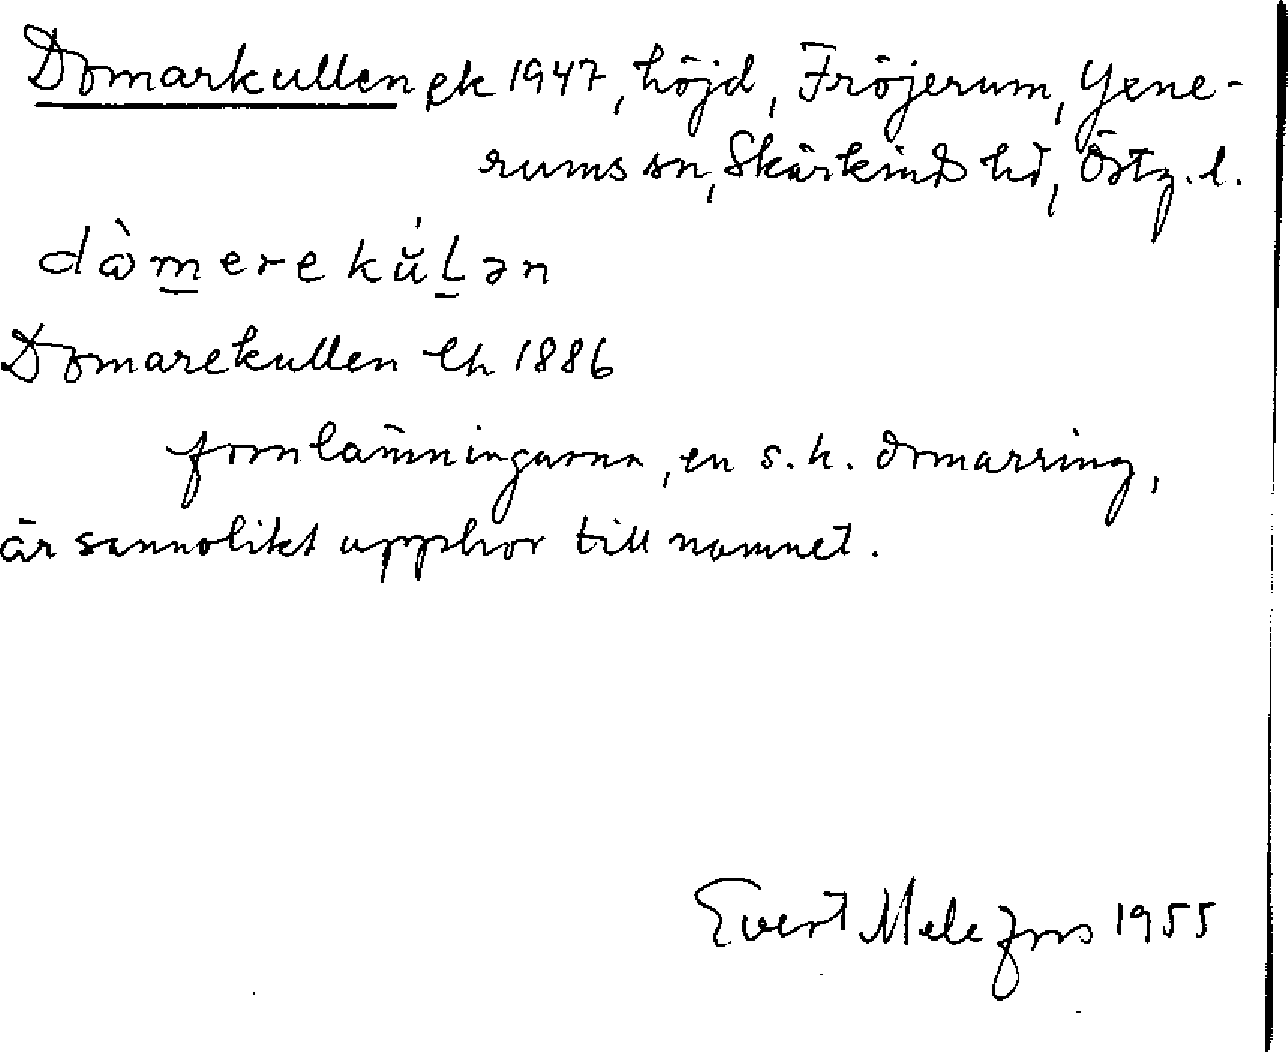 Domarkullen ek 1947, höjd, Fröjerum, Yxne-
rums sn, Skärkinds hd, Östg. l.
dὼmerekŭ́Lən
Domarekullen lh 1886
fornlämningarna, en s.k. domarring,
är sannolikt upphov till namnet.
Evert Melefors 1955